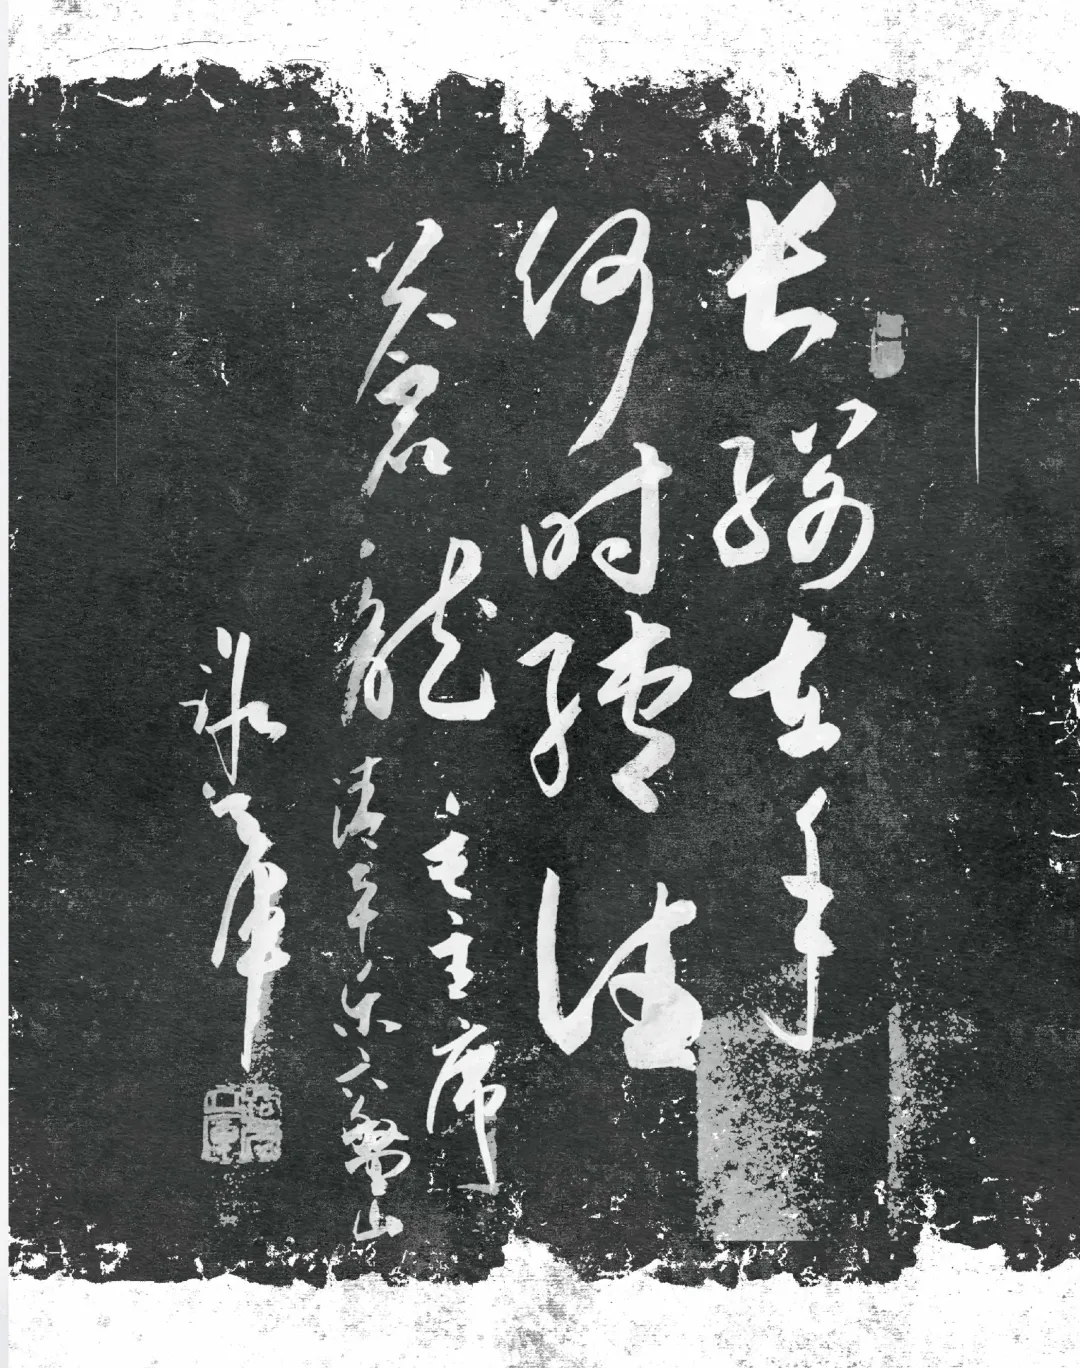 长缨在手
何时缚住
苍龙
毛主席
清平乐六盘山